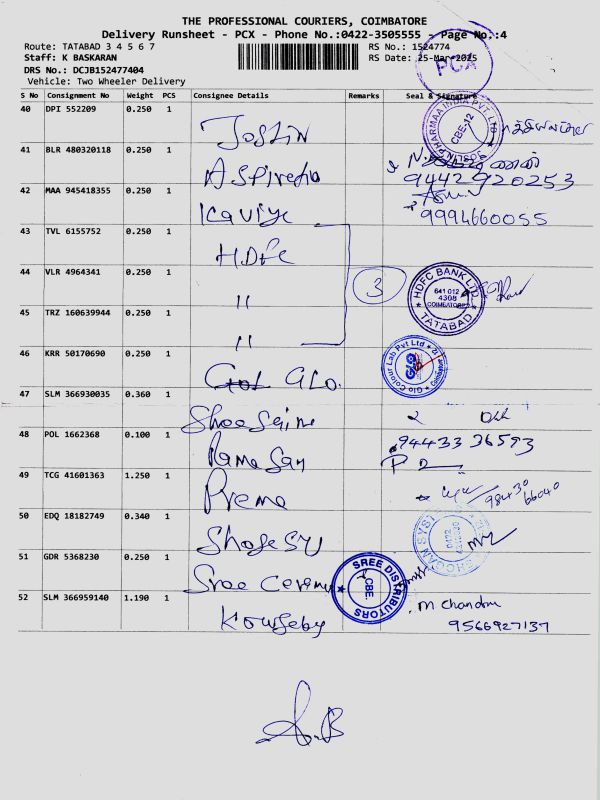 THE PROFESSIONAL COURIERS, COIMBATORE
Delivery Runsheet - PCX - Phone No.:0422-3505555 - Page No.:4
Route: TATABAD 3 4 5 6 7
RS No.: 1524774
Staff: K BASKARAN
RS Date: 25-Mar-2025
DRS No.: DCJB152477404
Vehicle: Two Wheeler Delivery
PCX
S No Consignment No Weight PCS Consignee Details Remarks Seal & Signature
40 DPI 552209 0.250 1 Joslin
CBE-12
41 BLR 480320118 0.250 1
9442920253
42 MAA 945418355 0.250 1
9994660055
43 TVL 6155752 0.250 1 HDFC
44 VLR 4964341 0.250 1 " 3 HDFC BANK LTD 641 012 4308 COIMBATORE TATABAD
45 TRZ 160639944 0.250 1 "
46 KRR 50170690 0.250 1 GLO. Glo Colour Lab Pvt Ltd GLO
47 SLM 366930035 0.360 1
48 POL 1662368 0.100 1 Rama San
9443336593
49 TCG 41601363 1.250 1 Prema
98430 66040
50 EDQ 18182749 0.340 1
51 GDR 5368230 0.250 1 Sree SREE DISTRIBUTORS CBE.
52 SLM 366959140 1.190 1 M Chandru
9566927137
A.B